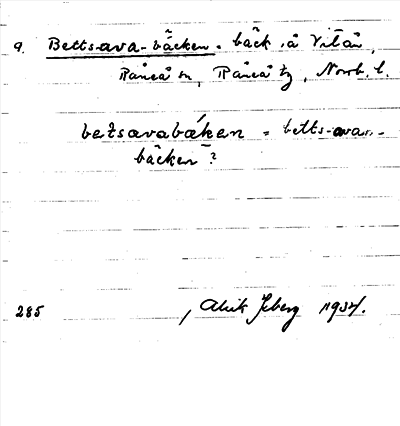 9. Betts-ava-bäcken. bäck å Vitån,
Råneå sn, Råneå tg, Norrb. l.
betsavabäken = betts-avan-
bäcken?
285
Alrik 1934.